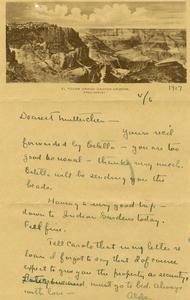 EL TOVAR GRAND CANYON ARIZONA
1917
4/6
Dearest
Yours rec'd
forwarded by Estilla – you are too
good as usual – thanks very much.
Estilla will be sending you the
beads.
Having a very good trip –
down to Indian Gardens today.
Felt fine.
Tell Carols that in my letter re
loan I forgot to say that I of course
expect to give you the property as security
must go to bed. Always
with love –